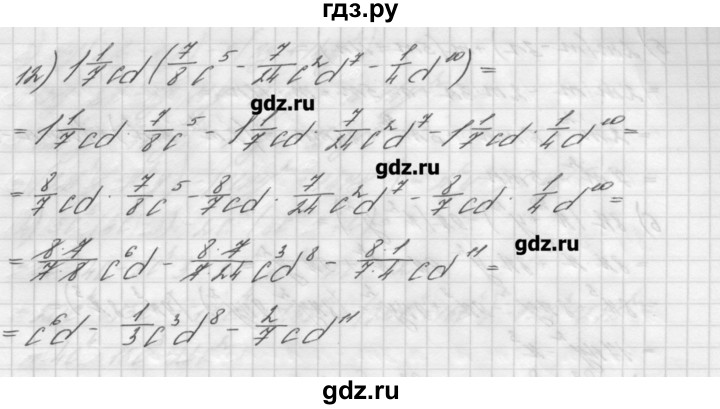 гдз.ру
12) 1 1/7 cd (7/8 c^5 - 7/24 c^2 d^7 - 1/4 d^10) =
gdz.ru
= 1 1/7 cd · 7/8 c^5 - 1 1/7 cd · 7/24 c^2 d^7 - 1 1/7 cd · 1/4 d^10 =
gdz.ru
= 8/7 cd · 7/8 c^5 - 8/7 cd · 7/24 c^2 d^7 - 8/7 cd · 1/4 d^10 =
gdz.ru
= 8·7/7·8 c^6 d - 8·7/7·24 c^3 d^8 - 8·1/7·4 cd^11 =
= c^6 d - 1/3 c^3 d^8 - 2/7 cd^11
gdz.ru